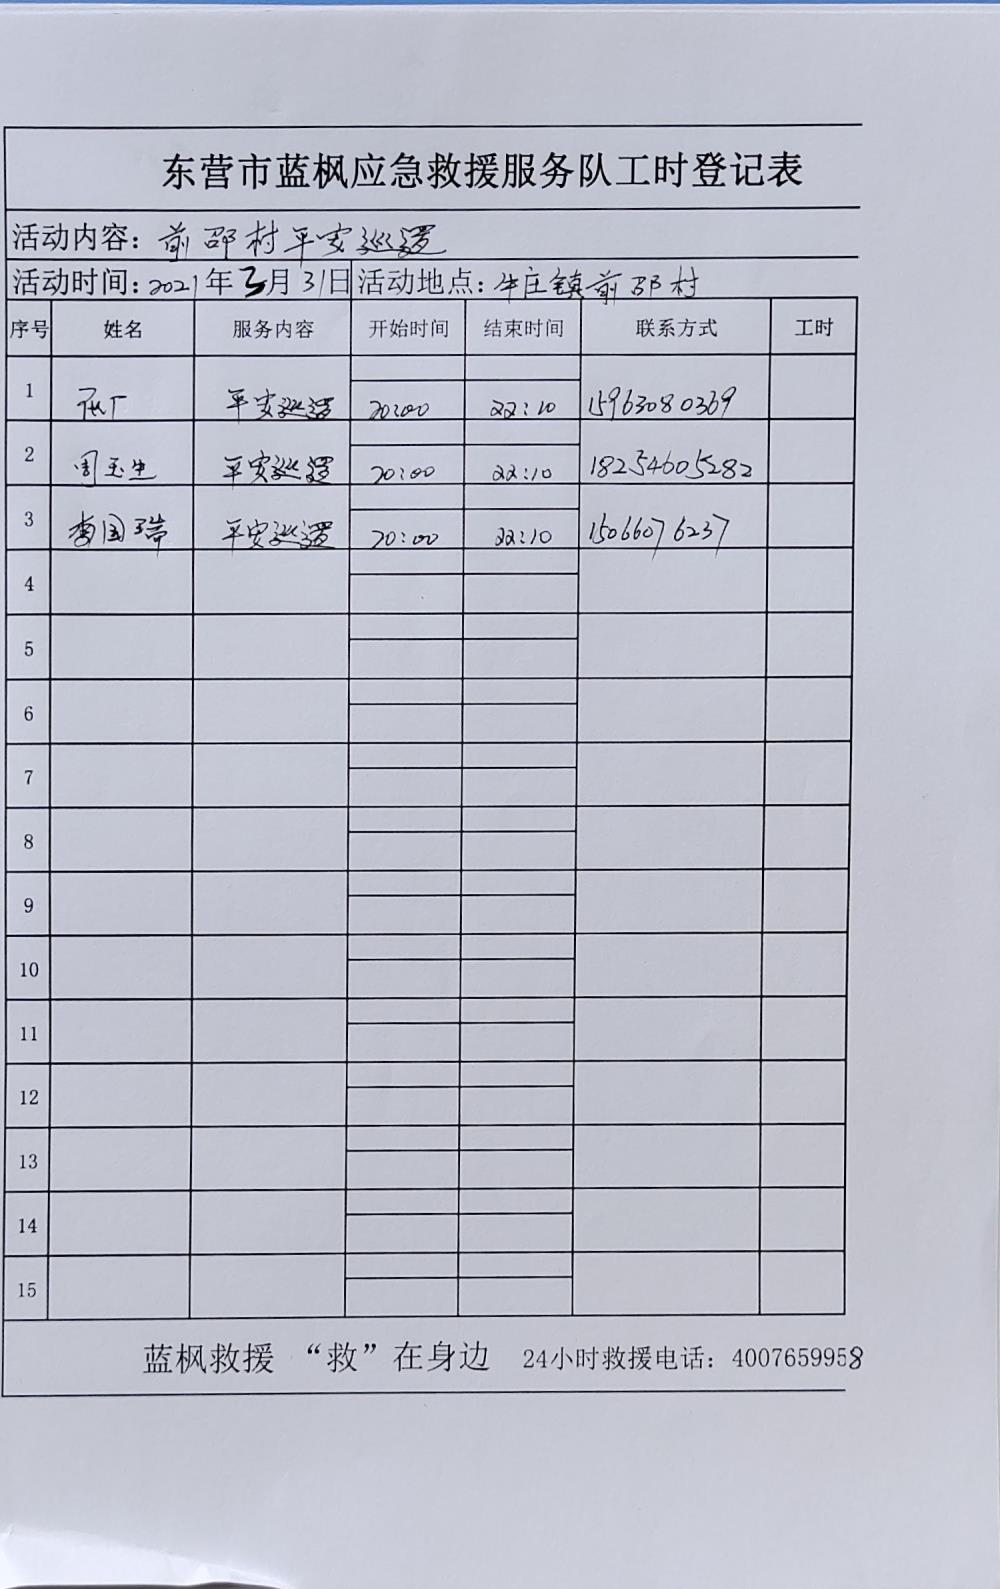 东营市蓝枫应急救援服务队工时登记表
活动内容：前邵村平安巡逻
活动时间：2021年3月31日 活动地点：牛庄镇前邵村
序号 姓名 服务内容 开始时间 结束时间 联系方式 工时
1 平安巡逻 20:00 22:10 15963080369
2 周玉生 平安巡逻 20:00 22:10 18254605282
3 李国瑞 平安巡逻 20:00 22:10 15066076237
4
5
6
7
8
9
10
11
12
13
14
15
蓝枫救援 “救”在身边 24小时救援电话：4007659958